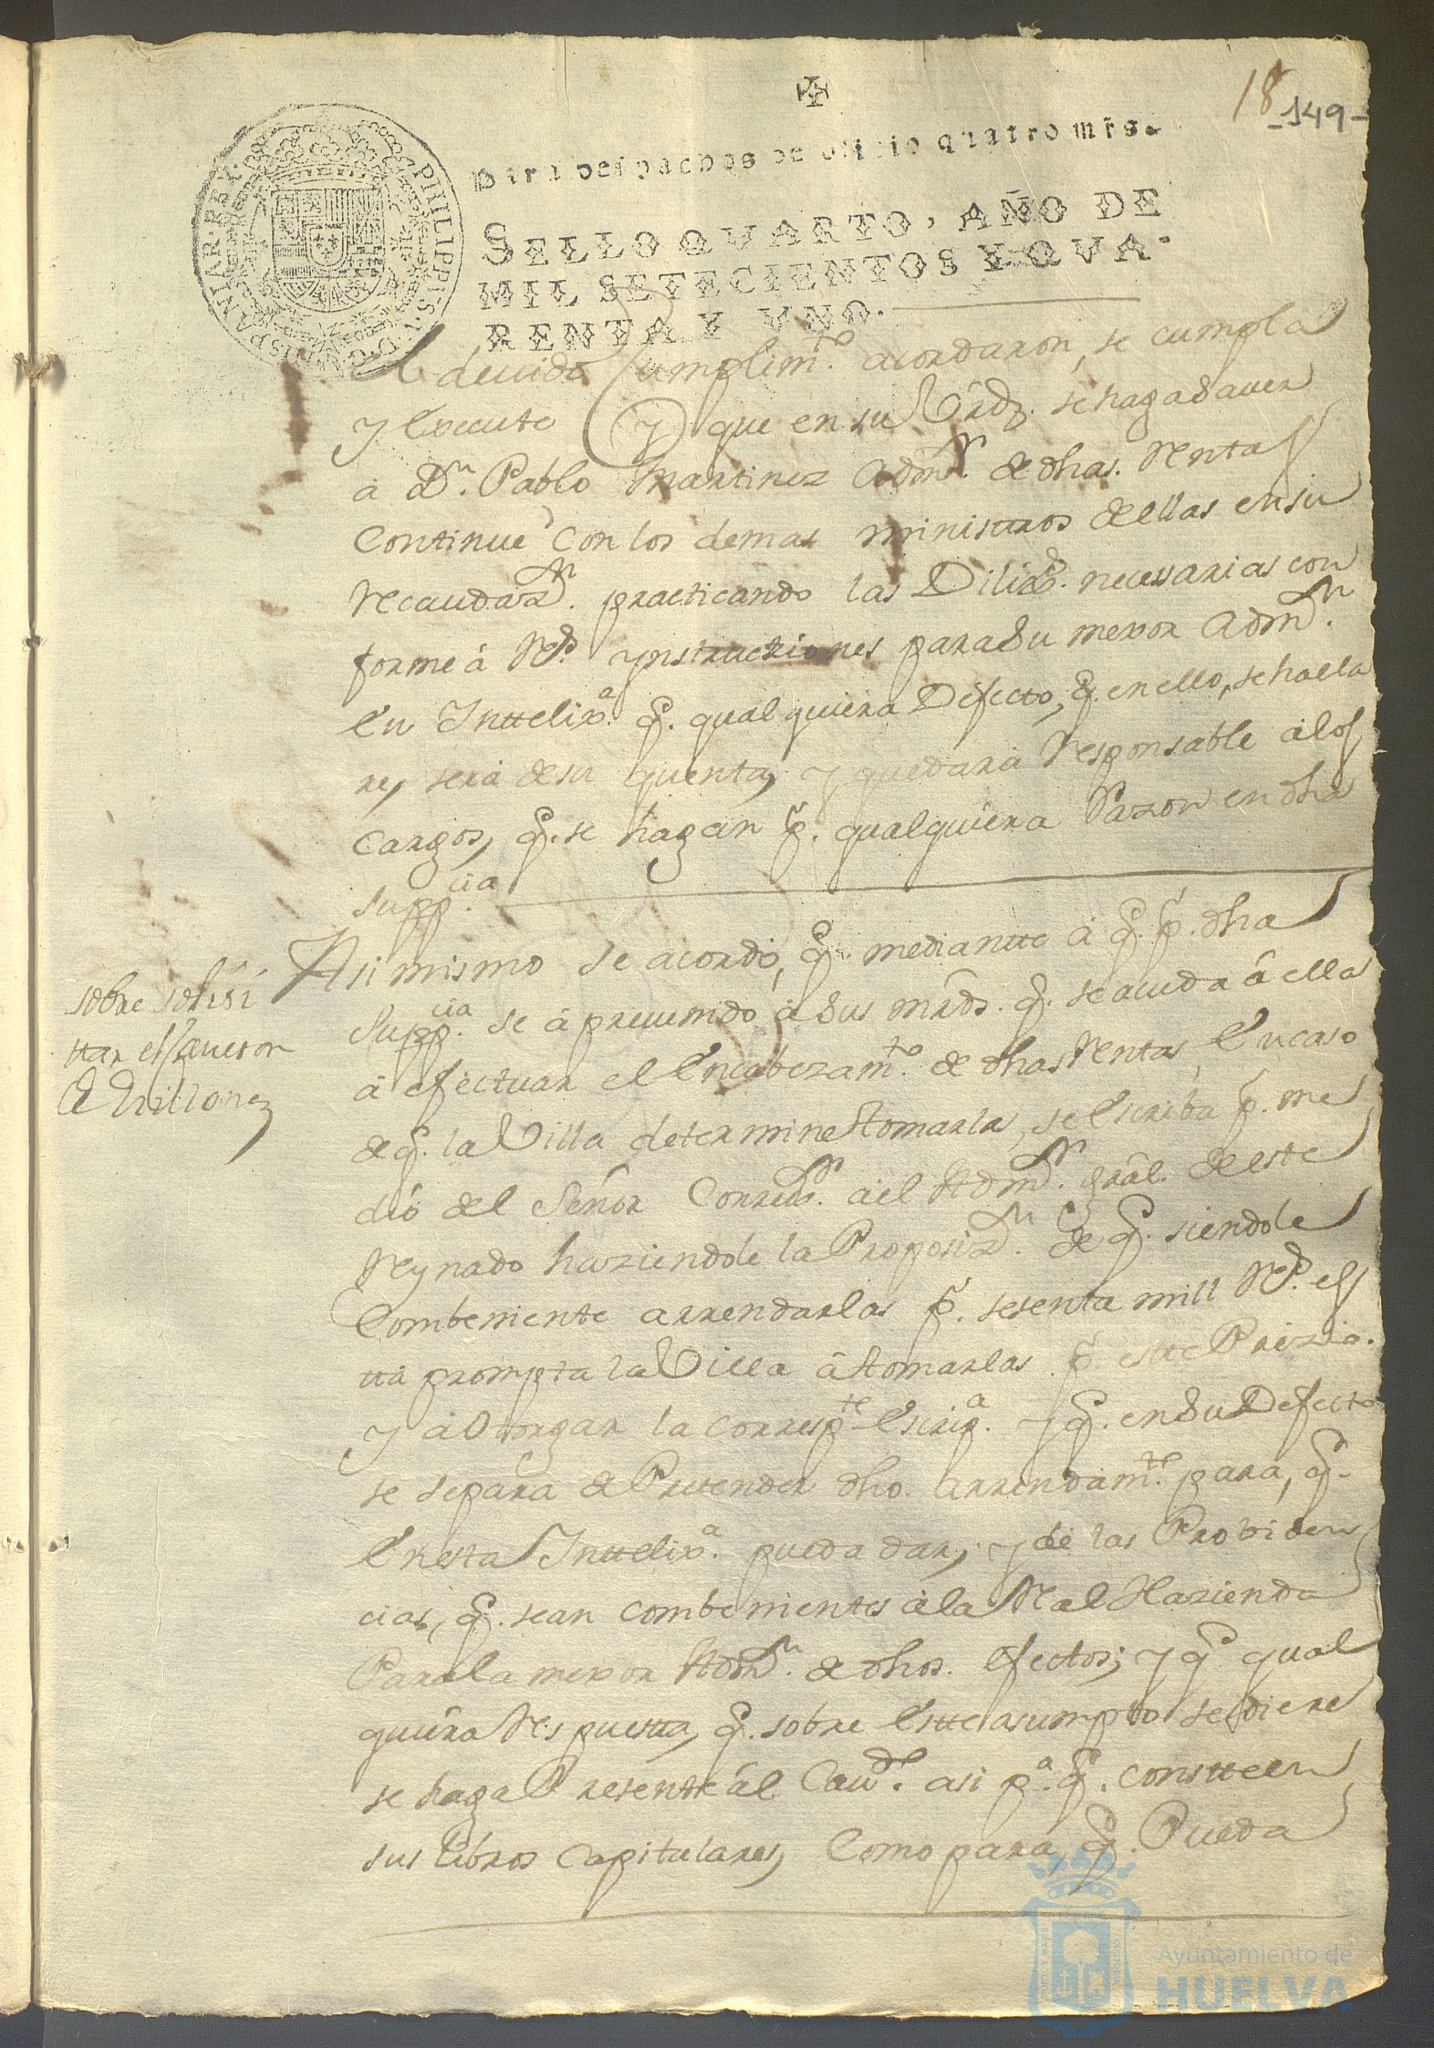 18
-149-
Para despachos de oficio quatro mrs.
SELLO QVARTO, AÑO DE
MIL SETECIENTOS Y QVA-
RENTA Y VNO.
PHILIPPUS V D G HISPANIAR REX
devido Cumplim.to acordaron, se cumpla
y execute Y que en su Vird. se haga saver
a Dn. Pablo Martinez Adm.r de dhas. Rentas
Continue con los demas ministros dellas en su
Recaudaz.n practicando las Dilix.s necessarias con
forme á Rs. ynstrucziones para su mexor Adm.n
En Inttelix.a q. qualquiera Defecto, q. en ello, se halla
re, será de su quenta, y quedará Responsable a los
Cargos, q. se hagan p. qualquiera Razon en dha
Supp.cia
Asi mismo se acordó, q. mediantte á q. p. dha
Supp.cia se á prevenido á sus mrds. q. se acuda á ella
á efectuar el Encabezam.to de dhas Rentas, En caso
de q. la Villa determine tomarla, se Escriba p. me
dio del Señor Correx.r a el Adm.r gral. de este
Reynado haziendole la Proposiz.n de q. siendole
Combeniente arrendarlas p. sesenta mill Rs. es
tta prompta la Villa á tomarlas p. estte Prezio.
y á Otorgar la corresp.te Escrip.a y q. en su Defecto
se separa de Pretender dho. arrendam.te para, q.
En esta Inttelix.a pueda dar, y dé las Probiden
cias, q. sean combenientes á la Real Hazienda
Para la mexor Adm.n de dhos. Efectos; y q.e qual
quiera Respuestta, q. sobre Estte asumpto se diere
se haga Presente al Cav.do asi p.a q. constte en
sus libros Capitulares, Como para, q. Pueda
sobre solisi
ttar el
de Millones
Ayuntamiento de
HUELVA